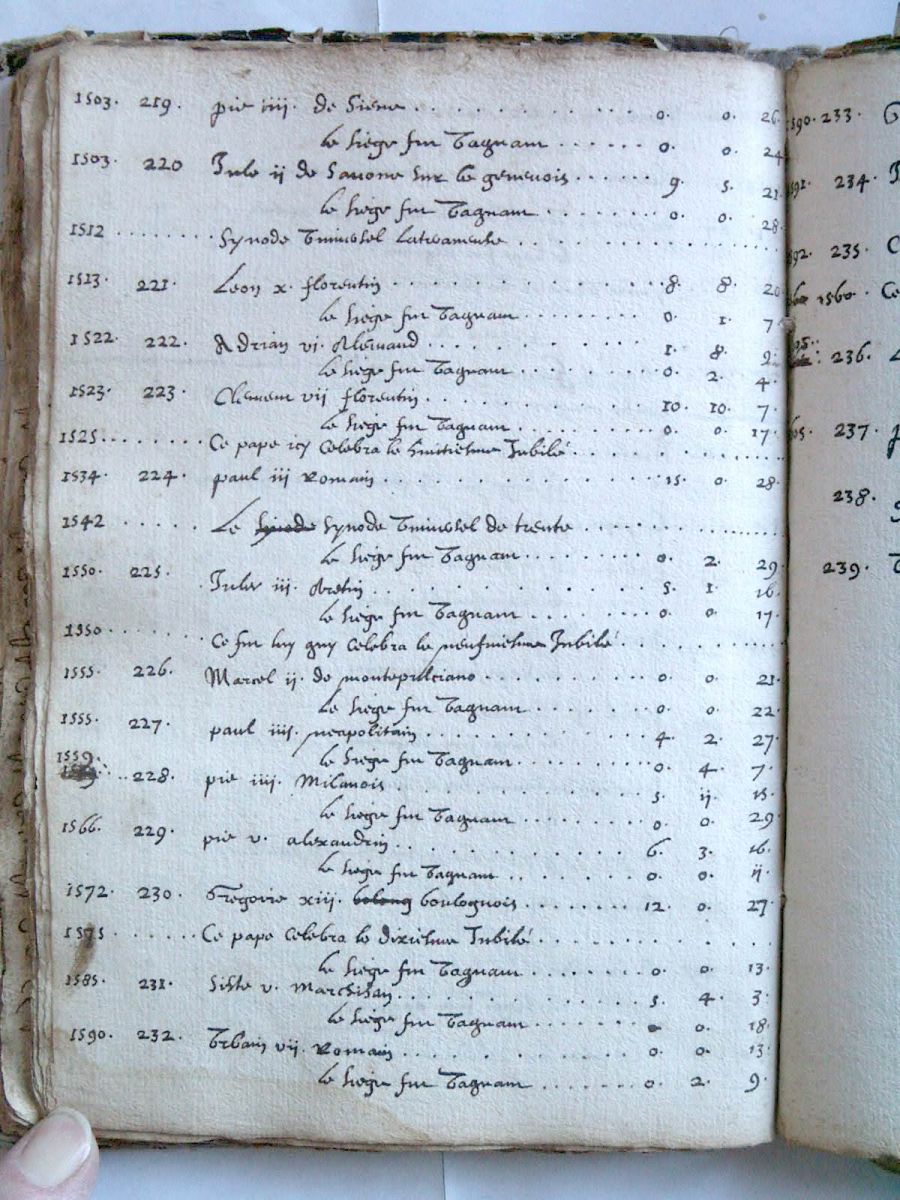 1503. 219. pie iiii. de Siene . . . . . . . . . . . . 0. 0. 26.
le siege fut vaquant . . . . . . 0. 0. 24
1503. 220 Jule ii de Sauone sur le geneuois . . . . . . 9. 5. 21
le siege fut vaquant . . . . . . . . 0. 0. 28.
1512 . . . . . . . . Synode vniuersel Lateranense . . . . . . . . . . . . . . . . . . . .
1513. 221. Leon x. florentin . . . . . . . . . . . . . . . . . 8. 8. 20
le siege fut vaquant . . . . . . . . . 0. 1. 7.
1522. 222. Adrian vi. Alemand . . . . . . . . . . . 1. 8.
le siege fut vaquant . . . . . . . . . 0. 2. 4.
1523. 223. Clement vii florentin . . . . . . . . . . . . . 10. 10. 7.
le siege fut vaquant . . . . . . . . . 0. 0. 17.
1525 . . . . . . . . Ce pape icy celebra le huitiesme Jubilé . . . . . . . . . . . .
1534. 224. paul iii Romain . . . . . . . . . . . . . . . 15. 0. 28.
1542 . . . . . . Le synode synode vniuersel de trente . . . . . . . . . . . . . .
le siege fut vaquant . . . . . . . . 0. 2. 29
1550. 225. Jules iii. Aretin . . . . . . . . . . . . . . 5. 1. 16.
le siege fut vaquant . . . . . . . . 0. 0. 17.
1550 . . . . . . . . Ce fut luy quy celebra le neufuiesme Jubilé . . . . . . . . . .
1555. 226. Marcel ii. de montepulciano . . . . . . . . . . 0. 0. 21.
le siege fut vaquant . . . . . . . 0. 0. 22.
1555. 227. paul iiii. neapolitain . . . . . . . . . . . . . 4. 2. 27.
le siege fut vaquant . . . . . . . . 0. 4. 7.
1559. 228. pie iiii. Milanois . . . . . . . . . . . . . . 5. ii. 15.
le siege fut vaquant . . . . . . . . 0. 0. 29
1566. 229. pie v. alexandrin . . . . . . . . . . . . 6. 3. 16.
le siege fut vaquant . . . . . . . . 0. 0. ii.
1572. 230. Gregoire xiii. bolong boulognois . . . . . . . . 12. 0. 27
1575 . . . . . . . Ce pape celebra le dixiesme Jubilé . . . . . . . . . . .
le siege fut vaquant . . . . . . . 0. 0. 13.
1585. 231. Siste v. Marchisan . . . . . . . . . . . . . 5. 4. 3.
le siege fut vaquant . . . . . . . . 0. 18.
1590. 232. Vrbain vii. Romain . . . . . . . . . . . . . 0. 0. 13.
le siege fut vaquant . . . . . . . . 0. 2. 9.
1590. 233.
234.
235.
1560. Ce
236.
237.
238.
239.